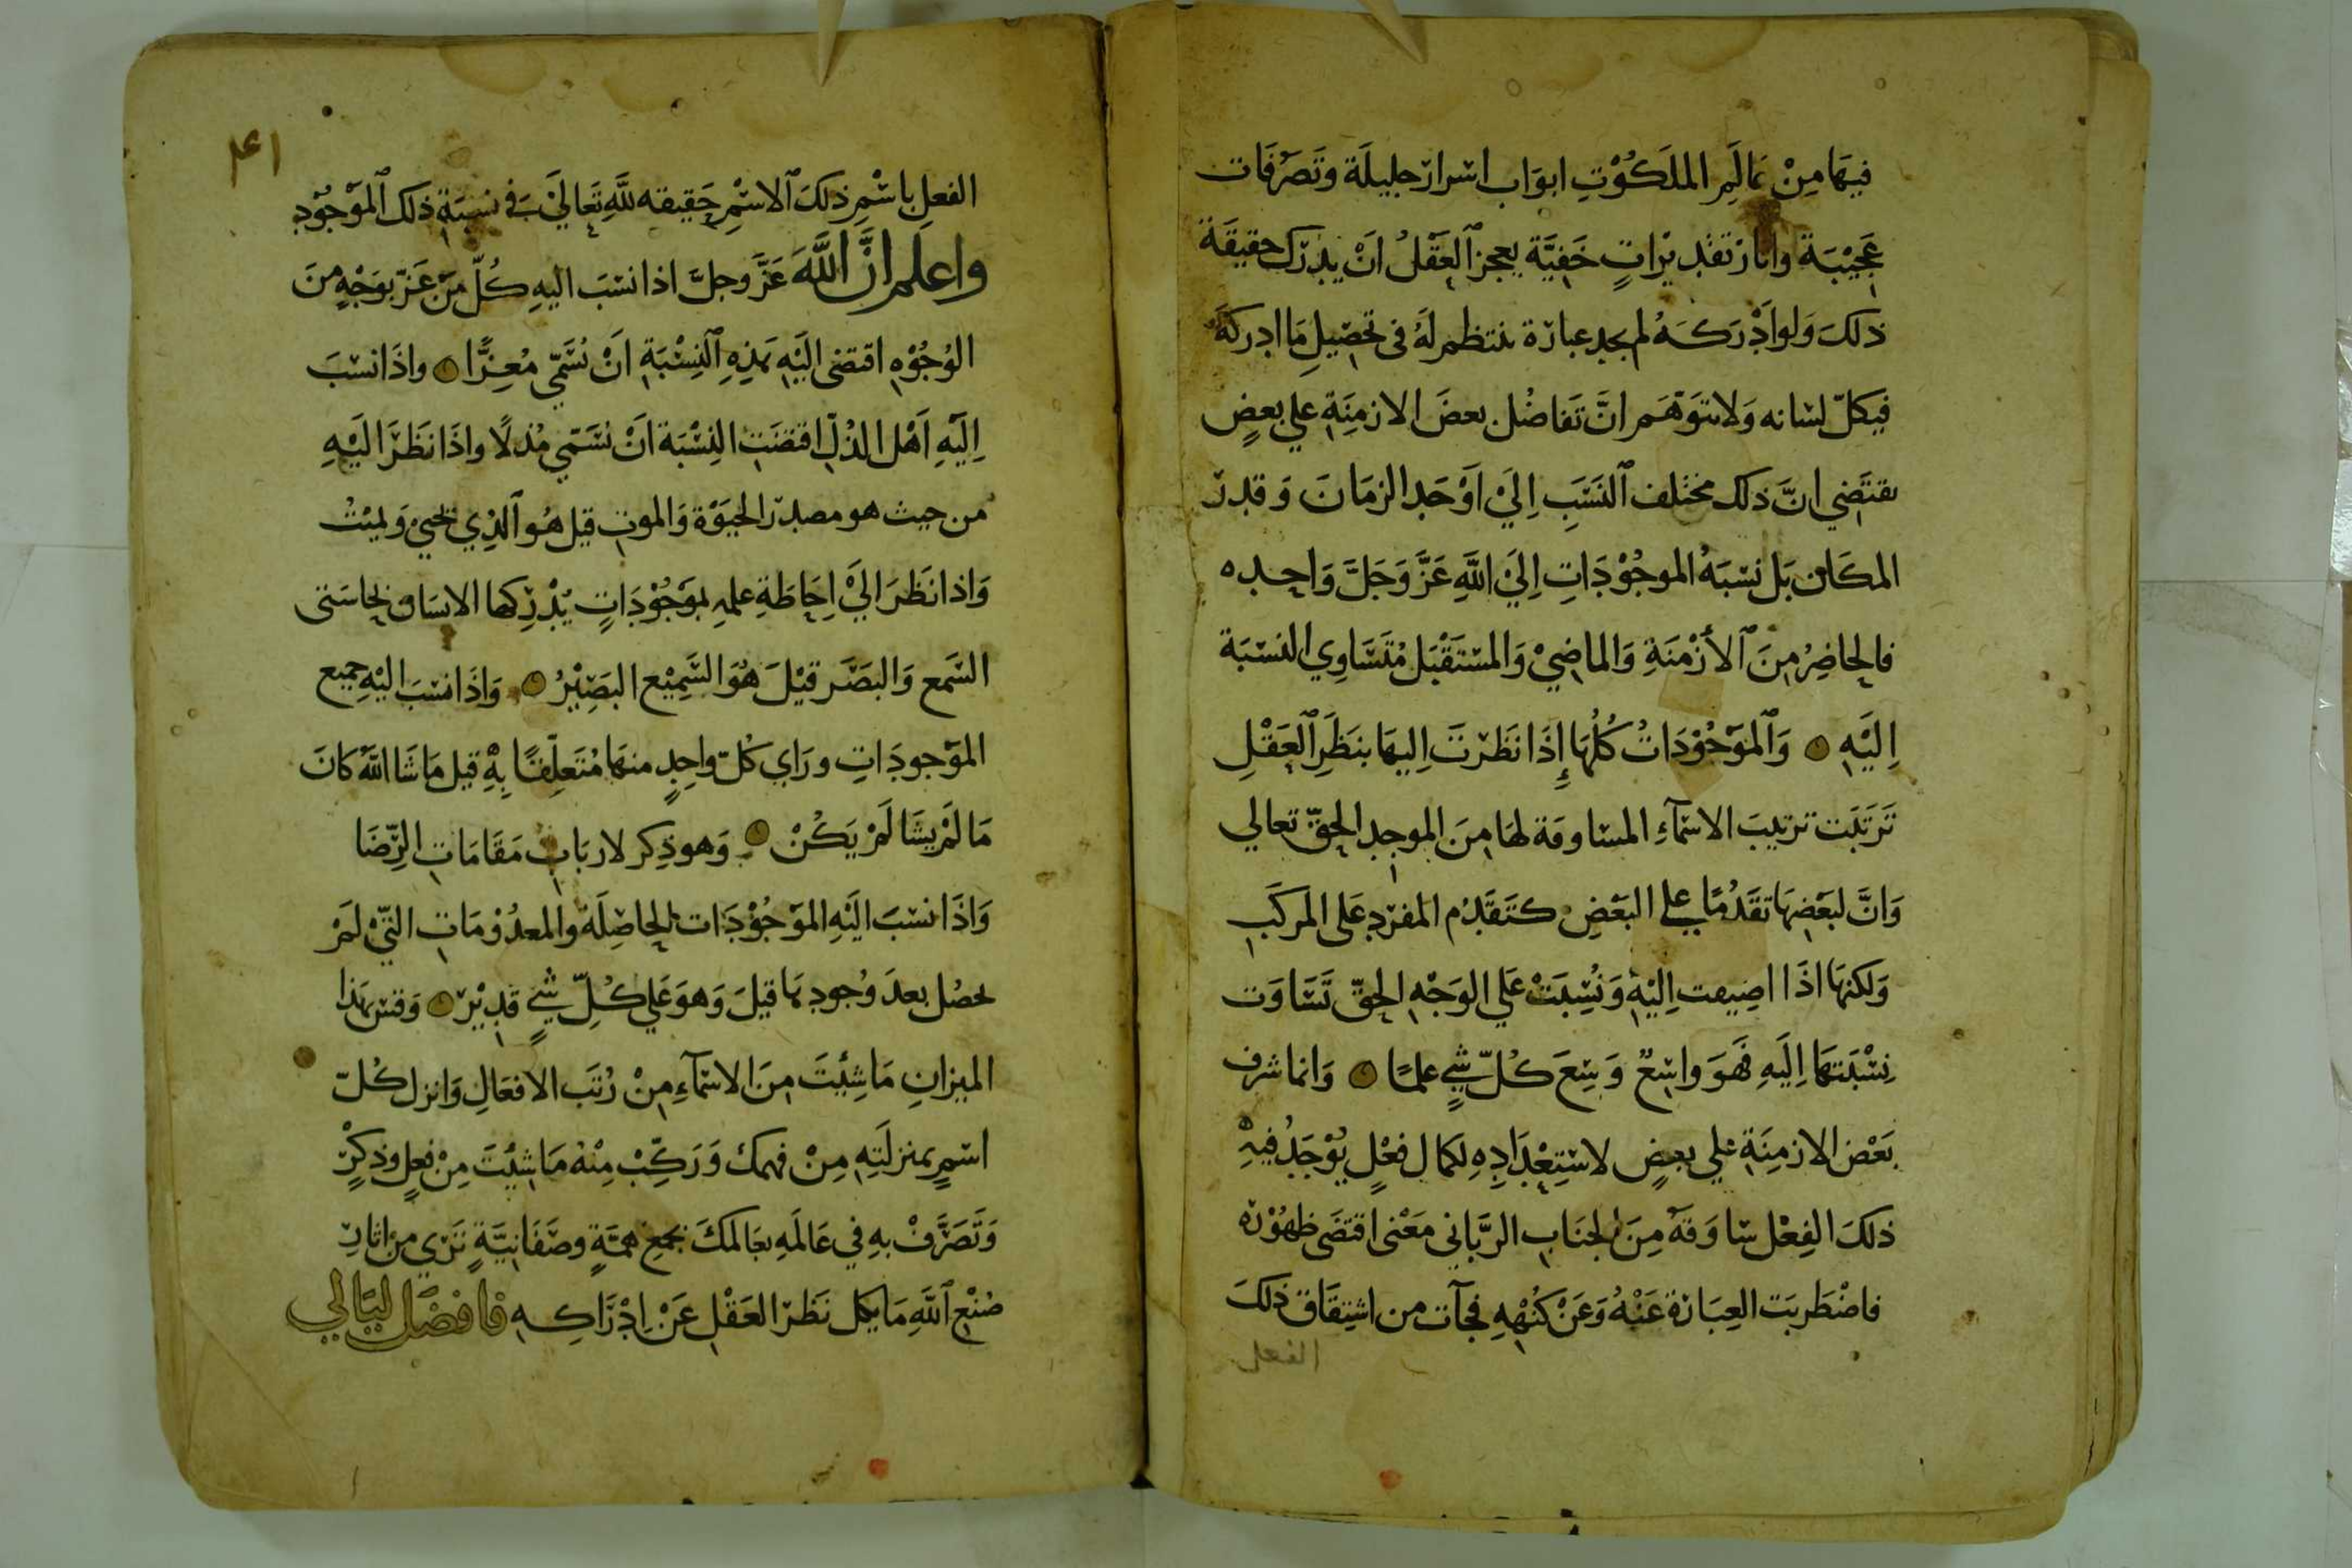 فيهَا مِنْ عَالَمِ الملَكُوْتِ ابوَاب اسْرار جليلَة وتَصَرُفَات
عَجِيْبَة واثار تقديْراتٍ خَفِيَّة يعجز ٱلعَقْلُ انْ يدْرك حقيقَة
ذلكَ وَلو ادْركَهُ لم يجد عبارة تنتظم لَهُ فى تحصْيلِ مَا ادركَهُ
فيكلّ لسَانه وَلا تتوَهَم انَّ تَفاضُل بعضَ الازمِنَةِ علي بعضٍ
يقتَضي انَّ ذلك مختلف ٱلنسَبِ اِليَ اوْحَد الزمَان وَقدر
المكَان بَل نسْبَهُ الموجُوْدَاتِ اِليَ اللَّهِ عَزَّ وَجَلَّ وَاحِده
فالحاضِرُ مِنَ ٱلأزْمنَةِ وَالماضِيْ وَالمسْتَقْبَل مُتَسَاوِي النسْبَة
اِليَهِ وَٱلموَجُوْدَاتُ كُلُهَا إِذَا نَظَرْتَ اِليهَا بنَظَرِ ٱلعَقْلِ
تَرَتبَت ترتيبَ الاسْمآءِ المسْاوقة لهَا مِنَ الموجد الحقّ تعالي
وَانَّ لبَعْضِهَا تقَدُمًا علي البَعْضِ كتَقَدُم المفرَد عَلى المركَبِ
وَلكنهَا اذَا اضِيفت اِليْهِ وَنُسِبَتْ عَلي الوَجْهِ الحقّ تَسَاوَت
نِسْبَتهَا اِليَهِ فَهوَ واسِعٌ وَسِعَ كُلّ شيٍ علمًا وَانما شرف
بَعْض الازمِنَةِ علي بعضٍ لاسْتِعْدَادِهِ لكمال فعْلٍ يُوْجَدُ فيْهِ
ذلكَ الفِعْل سَاوَقهَ مِنَ الجنَابِ الرَّبَاني مَعْنى اقتضَى ظهُوْره
فاضْطَربَت العِبَارَة عَنْهُ وَعَنْ كُنْهِهِ فجآت من اشتِقَاق ذلكَ
الفعل
٤١
الفعلِ باسْمِ ذلكَ ٱلاسْمِ حَقيقه للَّهِ تَعَاليَ في نسبَةِ ذلك ٱلموَجُوْد
واعلم انَّ اللَّهَ عَزَّ وجلَّ اذا نسَبَ اليهِ كُلّ مَنْ عَزّ بوَجْهٍ منَ
الوُجُوْهِ اقتضى اليَهِ بهَذِهِ ٱلنِسْبَةِ انَ يُسَمّي مُعِزًّا واذَا نسْبَ
اِليَهِ اهَل الذُلّ اقتضَتِ النِسْبَة انَ يُسَمّي مُذلًا واذَا نظَرَ اليَهِ
من حيث هو مصدر الحيَوْة وَالموت قيل هُو ٱلذِي يحْييْ وَيميْتُ
وَاذا نَظَرَ اليَ اِحَاطَةِ علمهِ بموَجُوْدَاتٍ يُدْركها الانسَان بحاسَتى
السَمع وَالبَصَر قيْلَ هُوَ السَّمِيْع البَصِيْرُ وَاذَا نسْبَ اليْهِ جميع
الموَجودَاتِ ورَاي كُلّ واحِدٍ منهَا مُتَعلِقًا بِهِ قيل مَا شَا اللَّهُ كانَ
مَا لَمْ يشَا لَمْ يَكُنْ وَهو ذِكر لاربَابِ مَقَامَاتِ الرِّضَا
وَاذَا نسْبَ اليَهِ الموَجُوْدَات الحاصِلَة والمعدُوْمَاتِ التّيْ لَمْ
تحصُل بعدَ وُجودِهَا قيلَ وَهوَ عَلي كُلِّ شيٍ قدِيْر وَقسْ بهَذا
الميزانِ مَا شِئتَ مِنَ الاسْمآءِ مِنْ رُتَب الافعَالِ وَانزل كُلّ
اسْمٍ بمنزلَتِهِ مِنْ فهمك وَرَكِّبْ مِنْهُ مَا شِئتَ مِنْ فعِلٍ وذِكرٍ
وَتَصَرَّفْ بهِ في عَالَمَهِ بعَالمكَ بجمع همّةٍ وصَفَانِيَّةٍ تَرَي من اثارِ
صُنْعِ ٱللَّهِ مَا يكل نَظَر العَقْل عَنْ اِدْرَاكِهِ فافضَل ليَالي